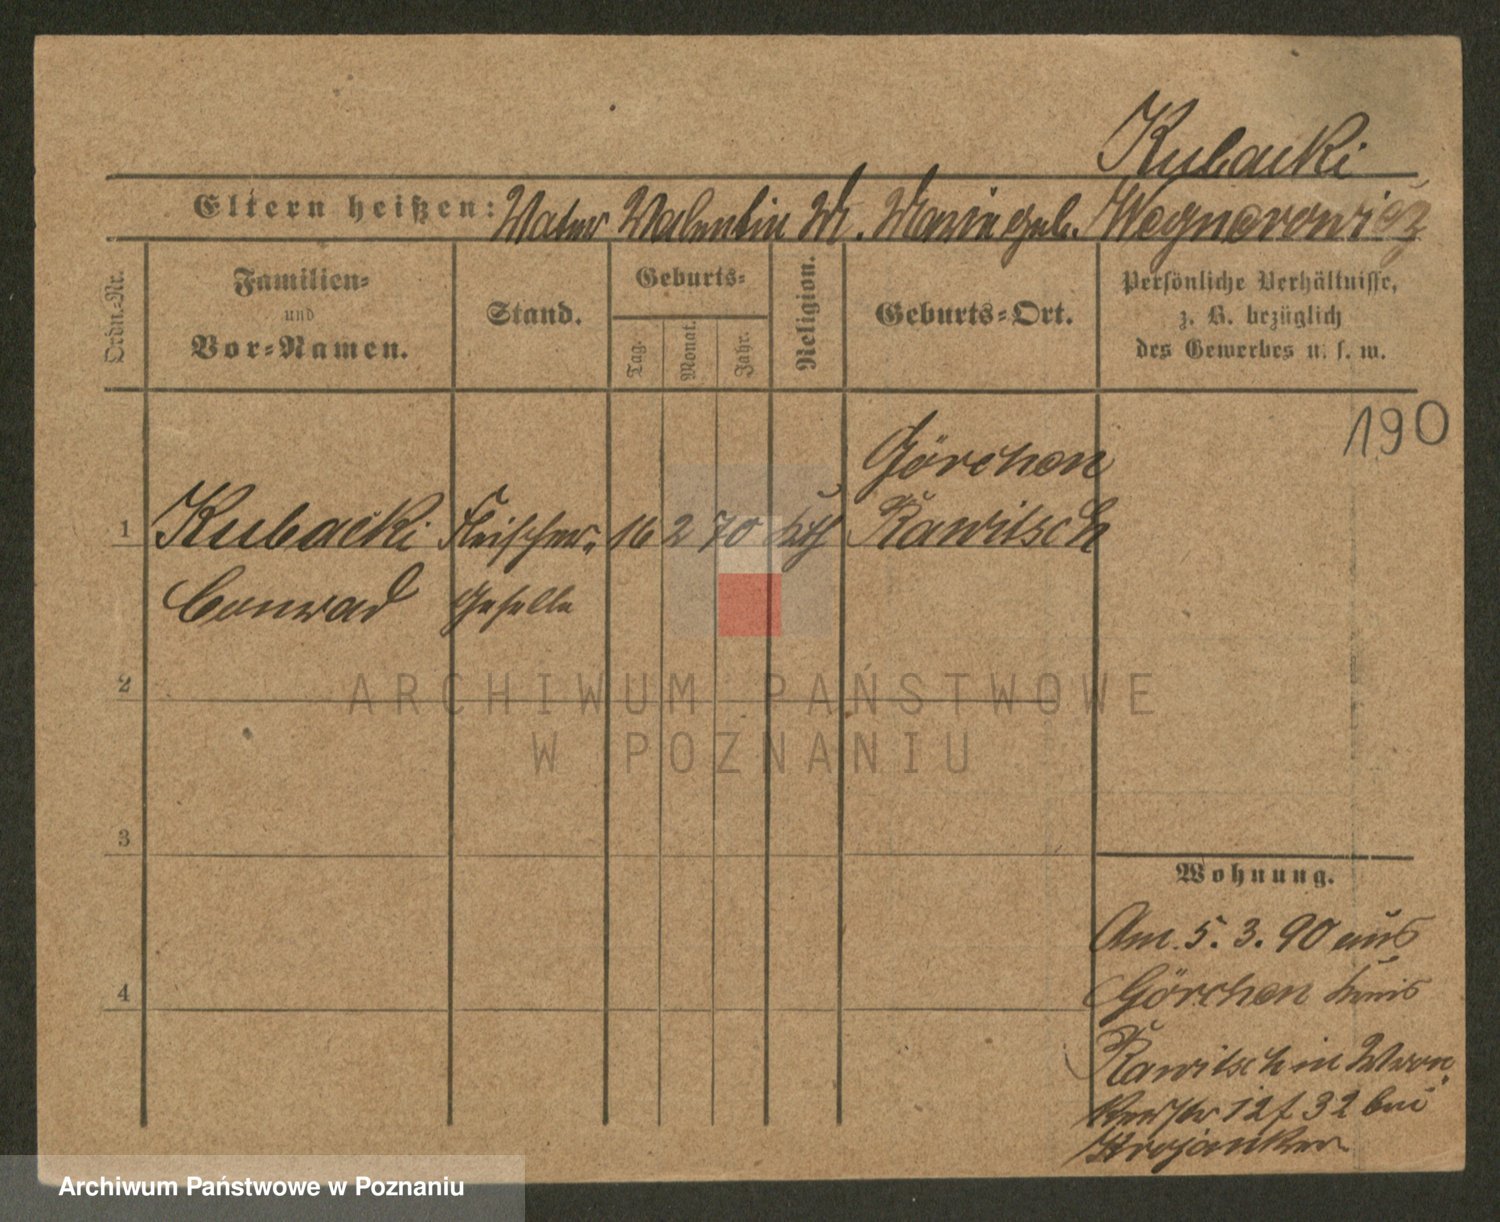 Kubacki
Eltern heißen: Vater Valentin M. Marie geb. Wegnerowicz
Ordn.-Nr.
Familien-
und
Vor-Namen.
Stand.
Geburts-
Tag.
Monat.
Jahr.
Religion.
Geburts-Ort.
Persönliche Verhältnisse,
z. B. bezüglich
des Gewerbes u. s. w.
190
Görchen
1 Kubacki Fleischer- 16 2 70 kth Rawitsch
Conrad Geselle
2
ARCHIWUM PAŃSTWOWE
W POZNANIU
3
Wohnung.
4
Am 5. 3. 90 aus
Görchen Kreis
Rawitsch in Wron-
kerstr 12 f 32 bei
Krojanker
Archiwum Państwowe w Poznaniu